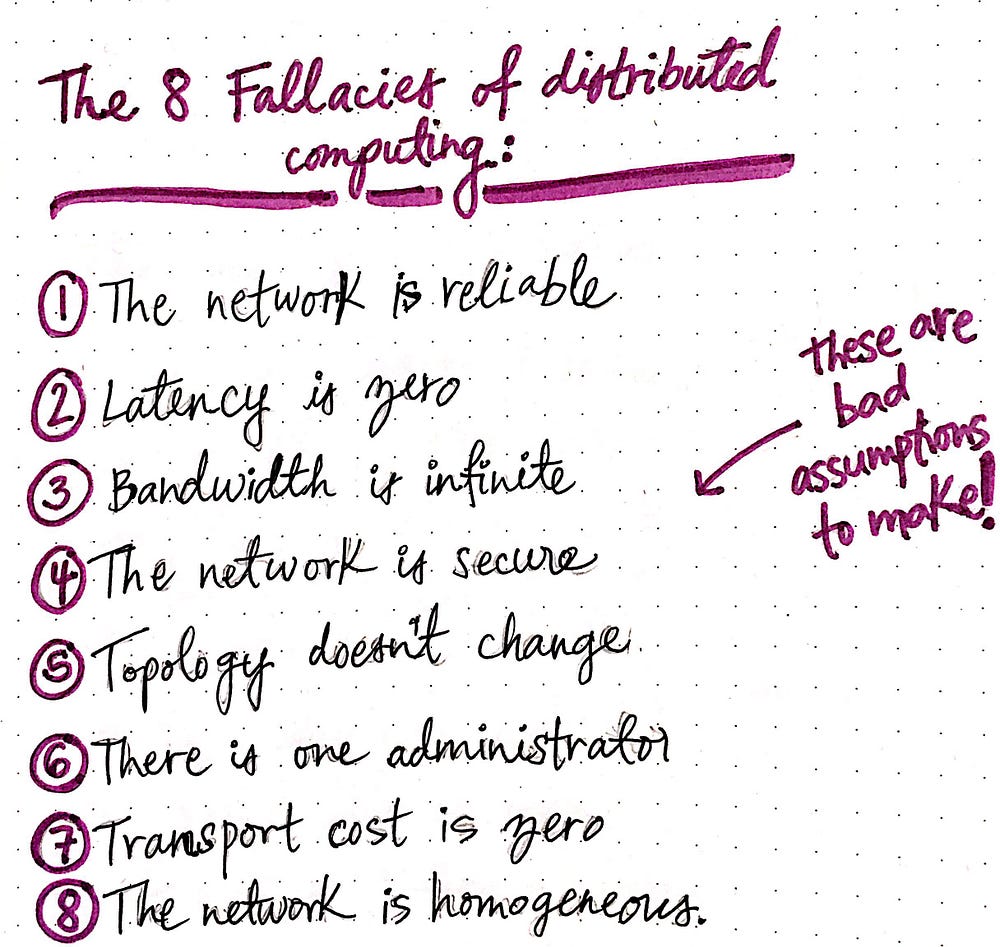 The 8 Fallacies of distributed
computing:
① The network is reliable
② Latency is zero
③ Bandwidth is infinite
④ The network is secure
⑤ Topology doesn't change
⑥ There is one administrator
⑦ Transport cost is zero
⑧ The network is homogeneous.
these are
bad
assumptions
to make!